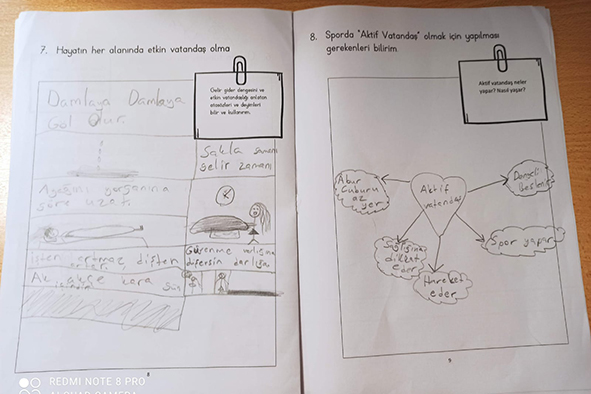 7. Hayatın her alanında etkin vatandaş olma
Gelir gider dengesini ve
etkin vatandaşlığı anlatan
atasözleri ve deyimleri
bilir ve kullanırım.
Damlaya Damlaya
Göl Olur.
Sakla samanı
gelir zamanı
Ayağını yorganına
göre uzat.
İşten artmaz, dişten
artar.
Güvenme varlığına
düşersin darlığa.
Ak akçe kara gün
içindir
8
8. Sporda "Aktif Vatandaş" olmak için yapılması
gerekenleri bilirim
Aktif vatandaş neler
yapar? Nasıl yaşar?
Abur
Cuburu
az
yer
Aktif
vatandaş
Dengeli
Beslenir
Sağlığına
dikkat
eder
Hareket
eder
Spor yapar
9
REDMI NOTE 8 PRO